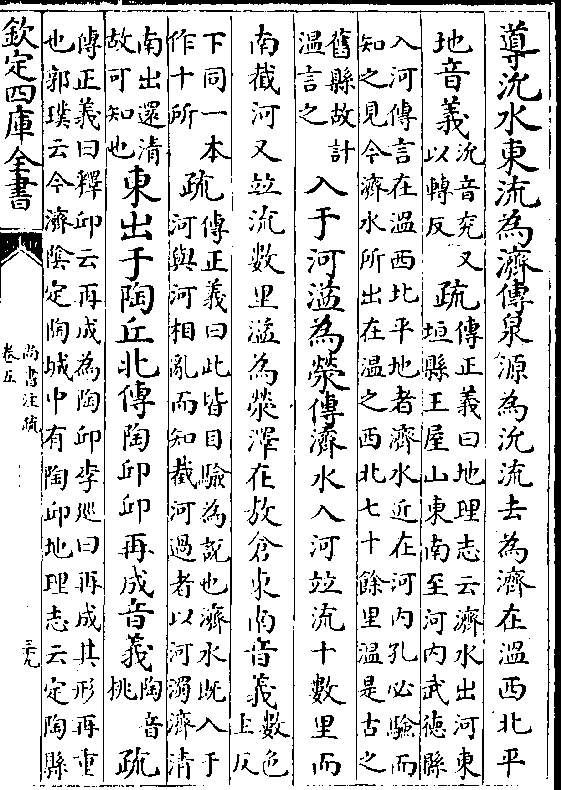 導沇水東流為濟傳泉源為沇流去為濟在溫西北平
地音義沇音兖又以轉反疏傳正義曰地理志云濟水出河東垣縣王屋山東南至河内武德縣
入河傳言在溫西北平地者濟水近在河内孔必驗而知之見今濟水所出在溫之西北七十餘里溫是古之
舊縣故計溫言之入于河溢為滎傳濟水入河並流十數里而
南截河又並流數里溢為滎澤在敖倉東南音義數色上反
下同一本作十所疏傳正義曰此皆目驗為說也濟水既入于河與河相亂而知截河過者以河濁濟清
南出還清故可知也東出于陶丘北傳陶邱邱再成音義陶音桃疏
傳正義曰釋邱云再成為陶邱李巡曰再成其形再重也郭璞云今濟隂定陶城中有陶邱地理志云定陶縣
欽定四庫全書
尚書注疏
卷五
三九